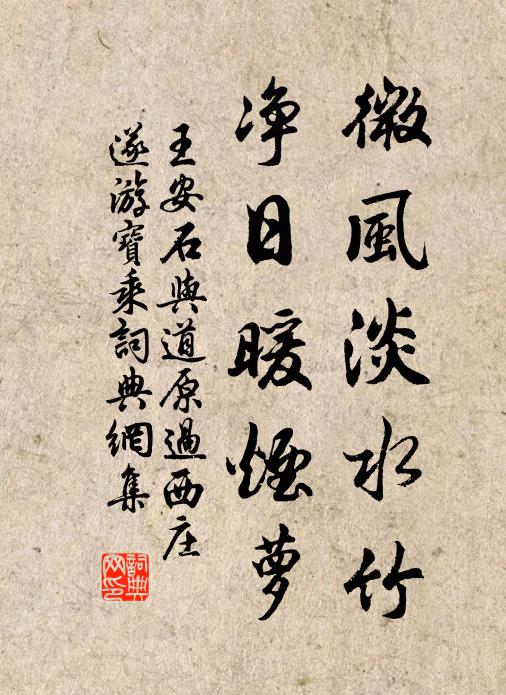 微風淡水竹
净日暖煙夢
王安石與道原過西庄
遂游寶乘詞典網集
詞典
网印